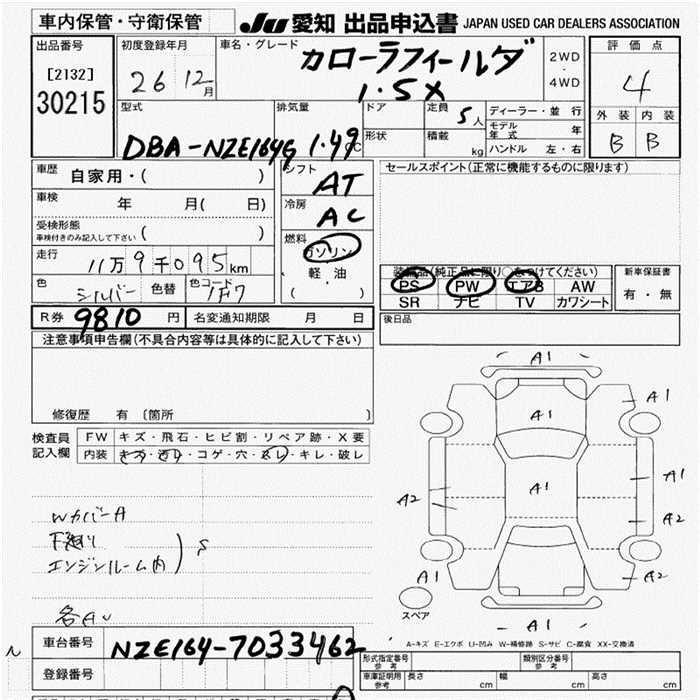 車内保管・守衛保管
JU 愛知 出品申込書 JAPAN USED CAR DEALERS ASSOCIATION
出品番号
[2132]
30215
初度登録年月
26 12月
車名・グレード
カローラフィールダ
1.5X
2WD
・
4WD
評価点
4
外装 内装
B B
型式
DBA-NZE164G
排気量
1.49 CC
ドア
形状
定員 5人
積載 kg
ディーラー・並行
モデル年式 年
ハンドル 左・右
車歴 自家用・( )
車検 年 月( 日)
受検形態
車検付きのみ記入して下さい ( )
走行 11万9千095km
色 シルバー 色替 色コード 1F7
シフト AT
冷房 AC
燃料
ガソリン
・
軽・油
( )
セールスポイント(正常に機能するものに限ります)
装備品(純正品に限り○をつけてください)
PS PW エアB AW
SR ナビ TV カワシート
新車保証書
有・無
R券 9810 円 名変通知期限 月 日
後日品
注意事項申告欄(不具合内容等は具体的に記入して下さい)
修復歴 有 〔箇所 〕
検査員記入欄
FW キズ・飛石・ヒビ割・リペア跡・X要
内装 キズ・汚レ・コゲ・穴・スレ・キレ・破レ
WカバーA
下廻り
エンジンルーム内 ) S
各AU
A1
A1
A1
A1
A1
A2
A2
A1
A2
A1
スペア
A-キズ E-エクボ U-凹み W-補修跡 S-サビ C-腐食 XX-交換済
車台番号 NZE164-7033462
登録番号
形式指定番号 参考
類別区分番号 参考
車庫証明用 参考 長さ cm 幅 cm 高さ cm